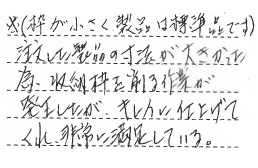 ※(枠が小さく製品は標準品です)
注入した製品の寸法が大きかった
為、収納枠を削る作業が
発生したが、キレイに仕上げて
くれ非常に満足している。